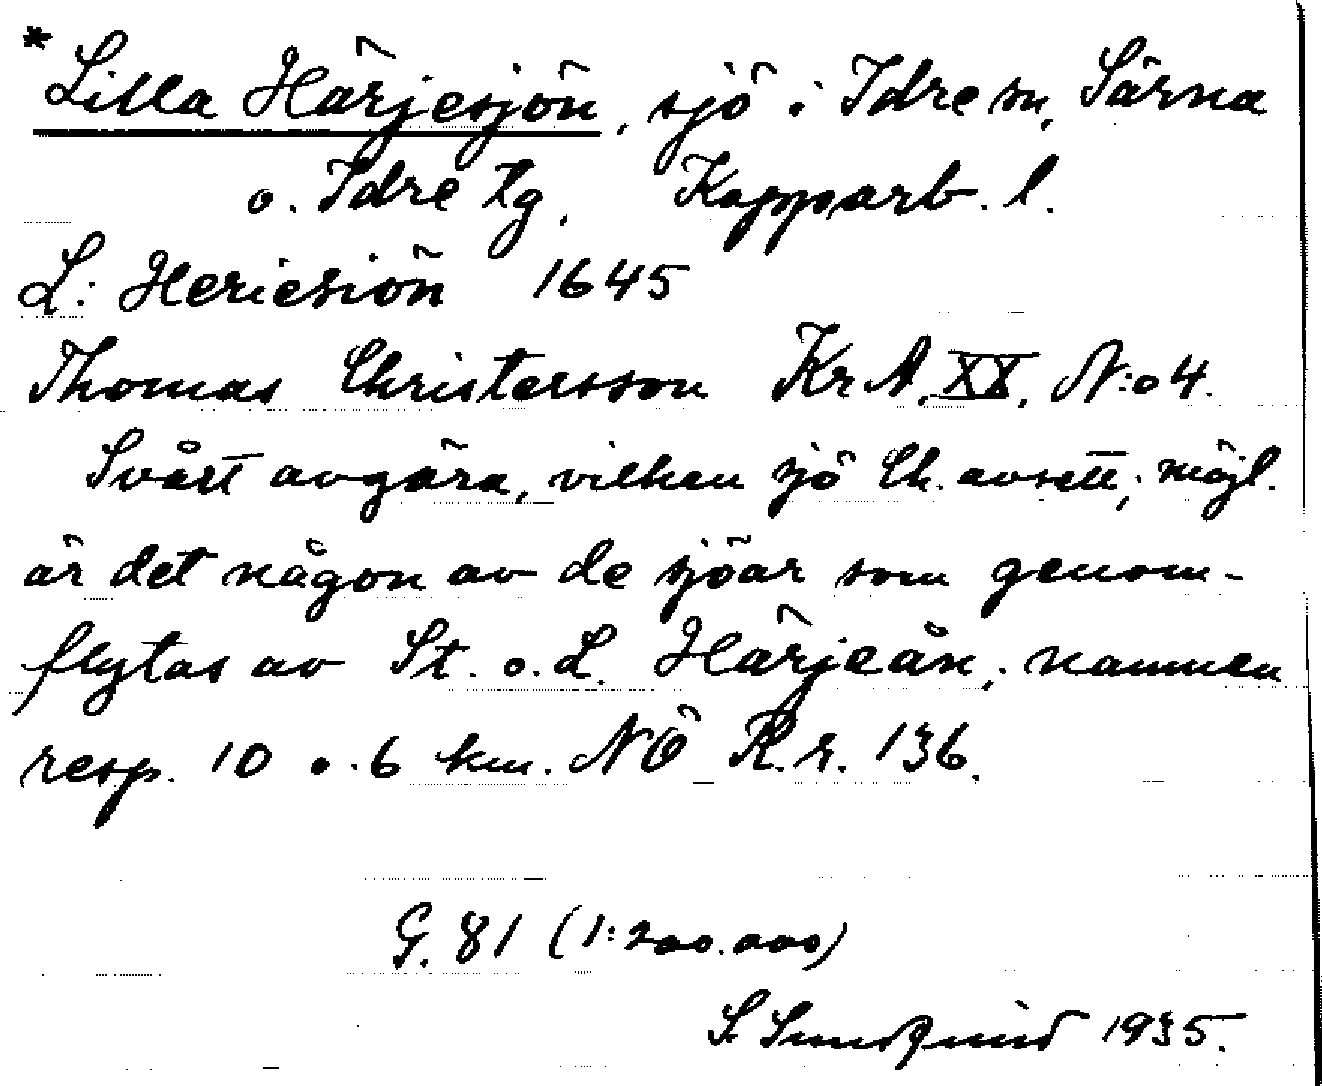 *Lilla Härjesjön, sjö i Idre sn, Särna
o. Idre tg, Kopparb. l.
L: Heriesiön 1645
Thomas Christersson KrA. XX, N:o 4.
Svårt avgöra, vilken sjö Ch. avsett; möjl.
är det någon av de sjöar som genom-
flytas av St. o. L. Härjeån; namnen
resp. 10 o. 6 km. NÖ R.r. 136.
G. 81 (1:200.000)
S. Sundquist 1935.